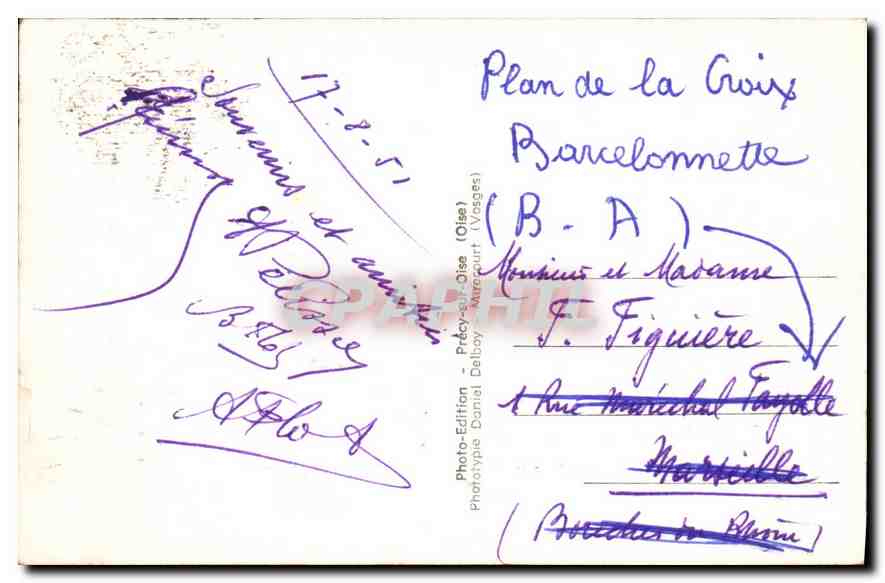 17-8-51
Souvenirs et amitiés
Photo-Edition - Précy-sur-Oise (Oise)
Phototypie Daniel Delboy - Mirecourt (Vosges)
CPAPHIL
Plan de la Croix
Barcelonnette
(B-A)
Monsieur et Madame
F. Figuière
1 Rue Maréchal Fayolle
Marseille
(Bouches du Rhône)